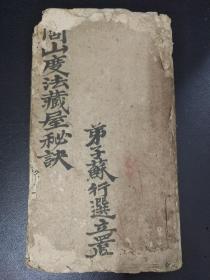 閭山度法藏屋秘訣
弟子蘇行選立置